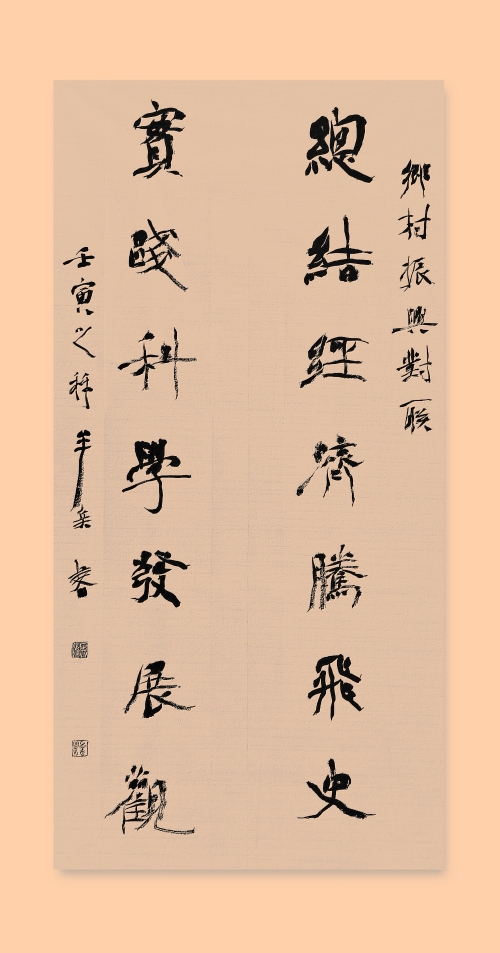 鄉村振興對联
總結經濟騰飛史
實踐科學發展觀
壬寅之秋 書